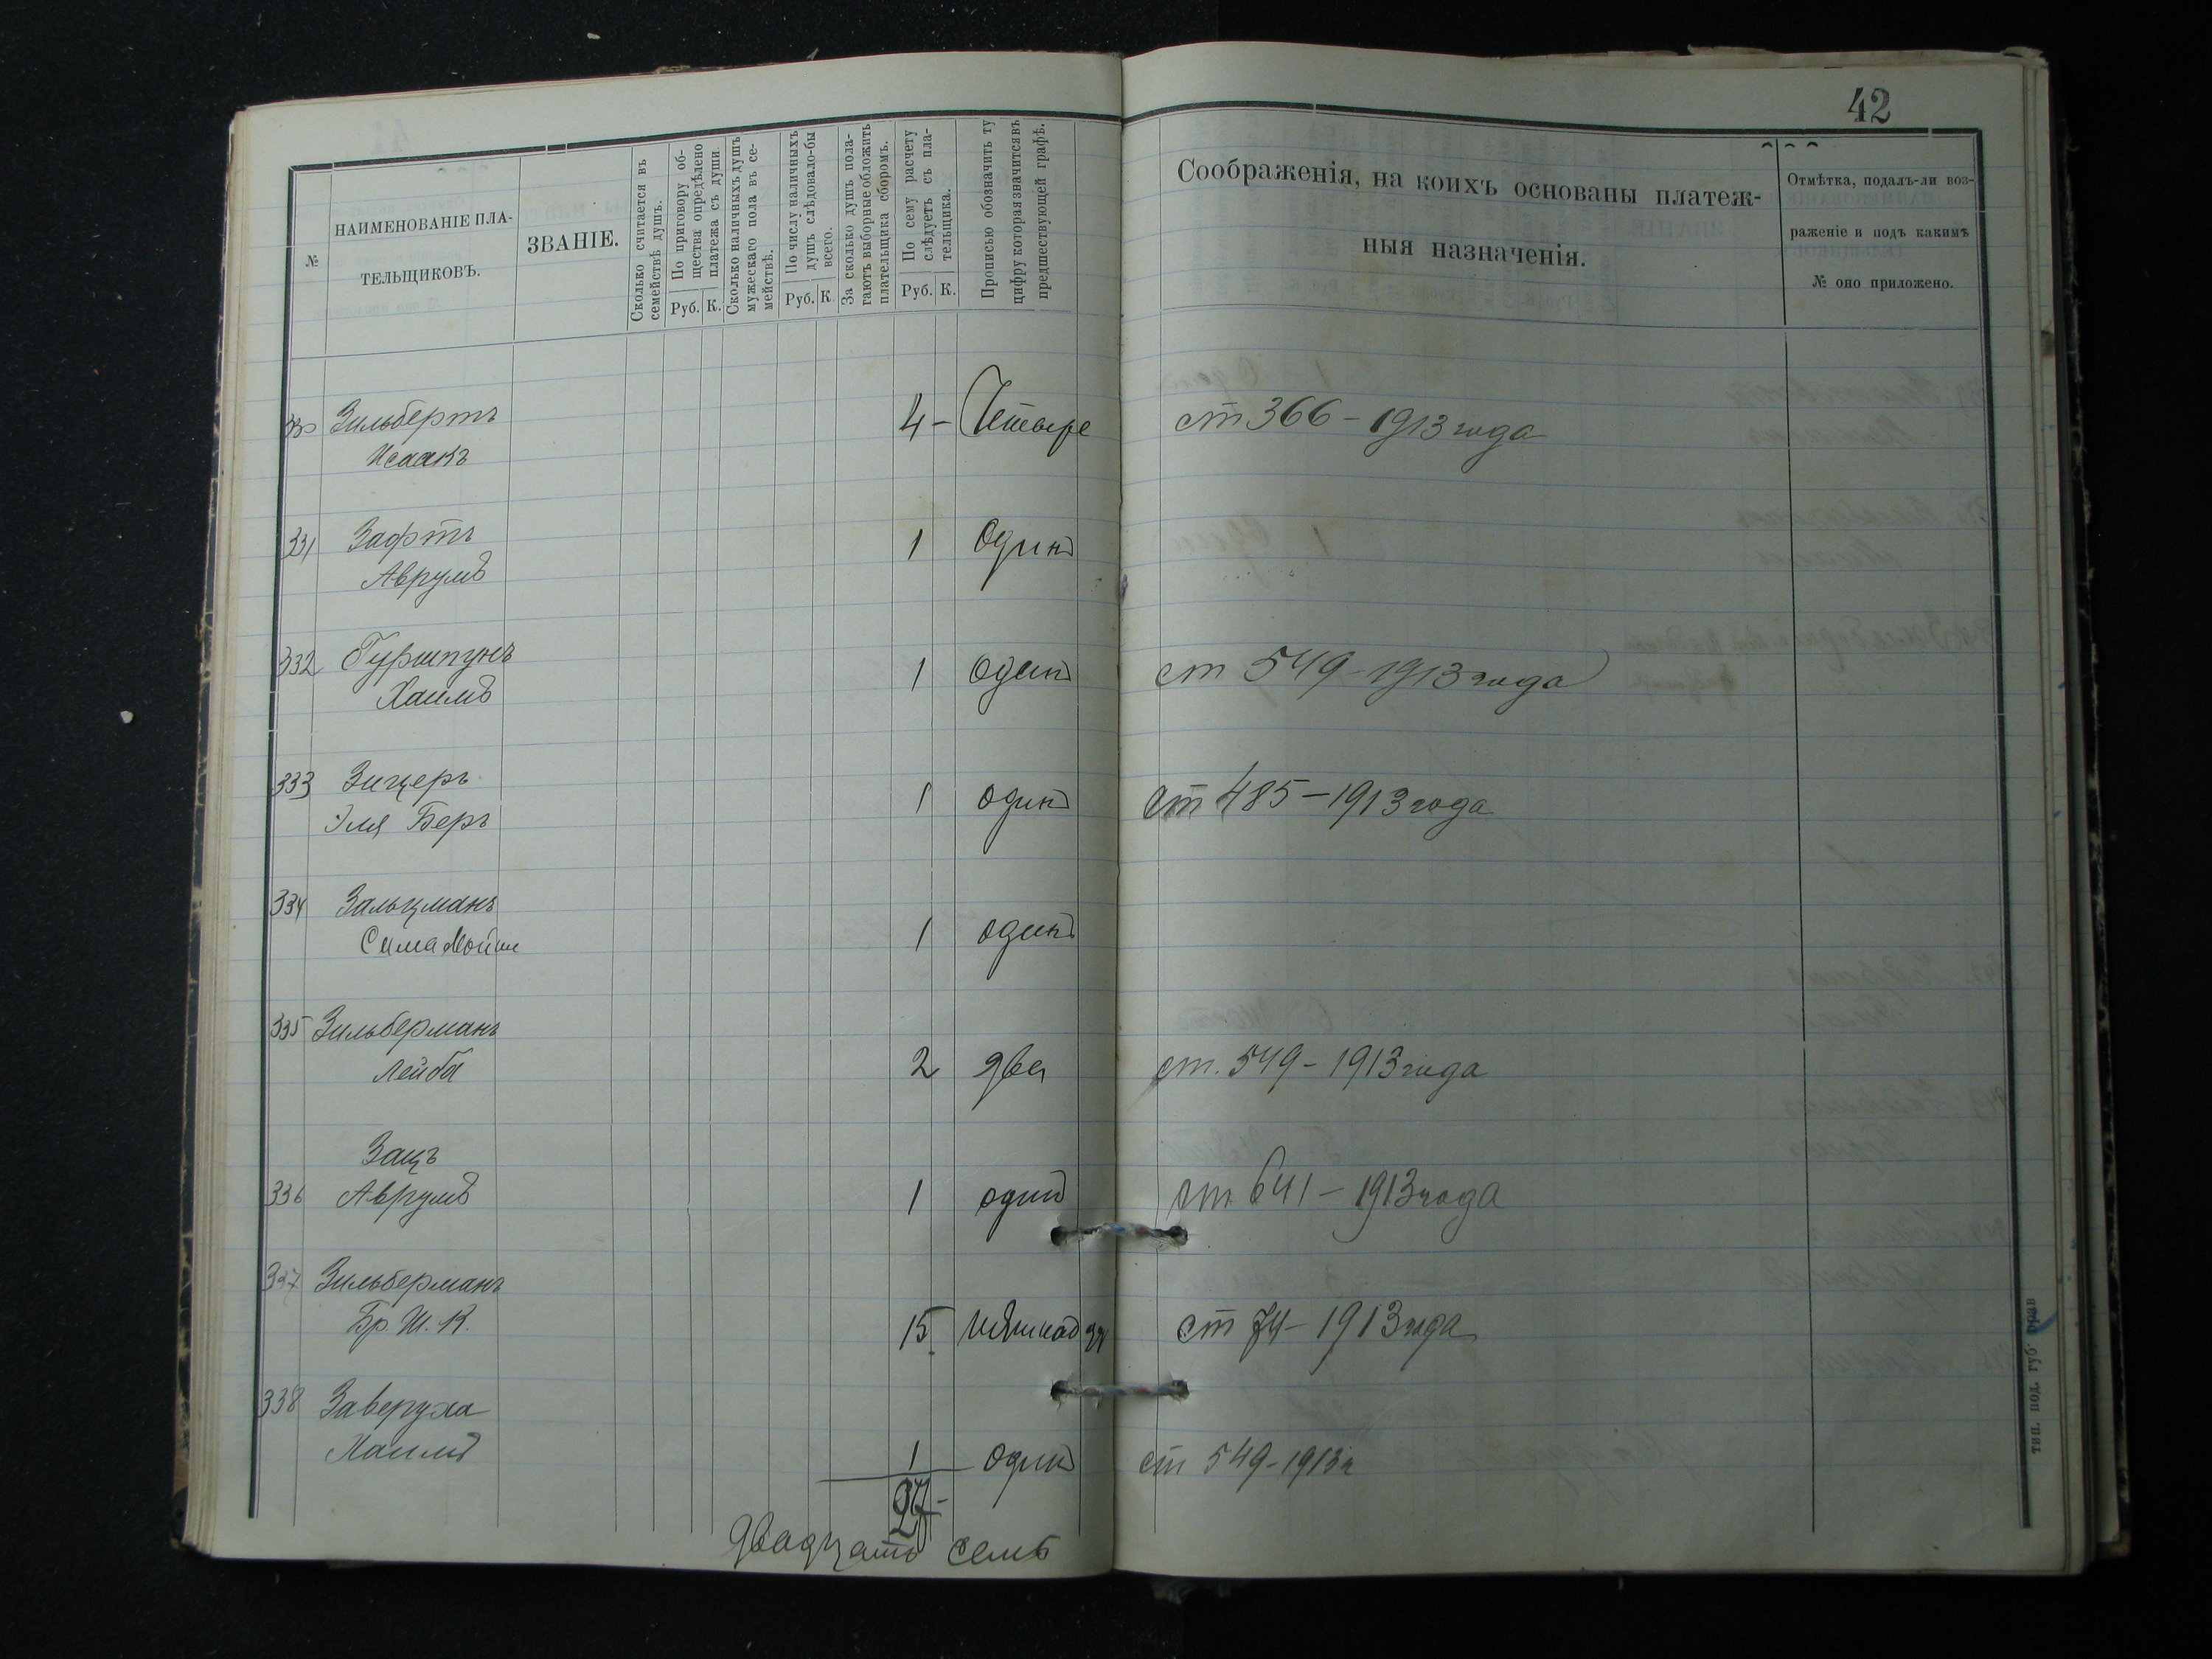 42
№
НАИМЕНОВАНІЕ ПЛА-
ТЕЛЬЩИКОВЪ.
ЗВАНІЕ.
Сколько считается въ
семействѣ душъ.
По приговору об-
щества опредѣлено
платежа съ души.
Руб. К.
Сколько наличныхъ душъ
мужескаго пола въ се-
мействѣ.
По числу наличныхъ
душъ слѣдовало-бы
всего.
Руб. К.
За сколько душъ пола-
гаютъ выборные обложить
плательщика сборомъ.
По сему расчету
слѣдуетъ съ пла-
тельщика.
Руб. К.
Прописью обозначить ту
цифру которая значится въ
предшествующей графѣ.
Соображенія, на коихъ основаны платеж-
ныя назначенія.
Отмѣтка, подалъ-ли воз-
раженіе и подъ какимъ
№ оно приложено.
330 Зильбертъ 4 — Четыре ст 366 - 1913 года
Исаакъ
331 Зафтъ 1 Одинъ
Аврумъ
332 Гуршпунъ 1 Один ст 549 - 1913 года
Хаимъ
333 Зицеръ 1 один ст 485 - 1913 года
Эля Беръ
334 Зальцманъ 1 один
Сима Мойше
335 Зильберманъ
Лейба 2 два ст. 549 - 1913 года
Защъ
336 Аврумъ 1 один ст 641 - 1913 года
337 Зильберманъ
Бр. Ш. К. 15 ст 74 - 1913 года
338 Заверуха
Хаимъ 1 один ст 549 - 1913 г
27 -
двадцать семь
тип. под. губ. прав